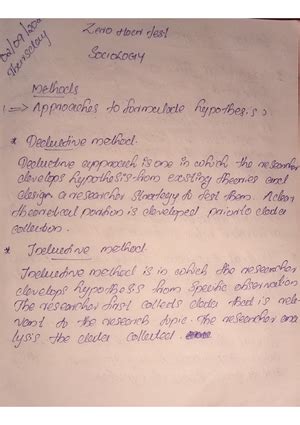 02/09/20
Thursday
Zero Hour Test
Sociology
Methods
1 => Approaches to formulate hypothesis :
* Deductive method.
Deductive approach is one in which the researcher
develops hypothesis from existing theories and
design a researcher strategy to test them. A clear
theoretical position is developed prior to data
collection.
* Inductive method
Inductive method is in which the researcher
develops hypothesis from specific observation
The researcher first collects data that is rele
vant to the research topic. The researcher ana
lysis the data collected.